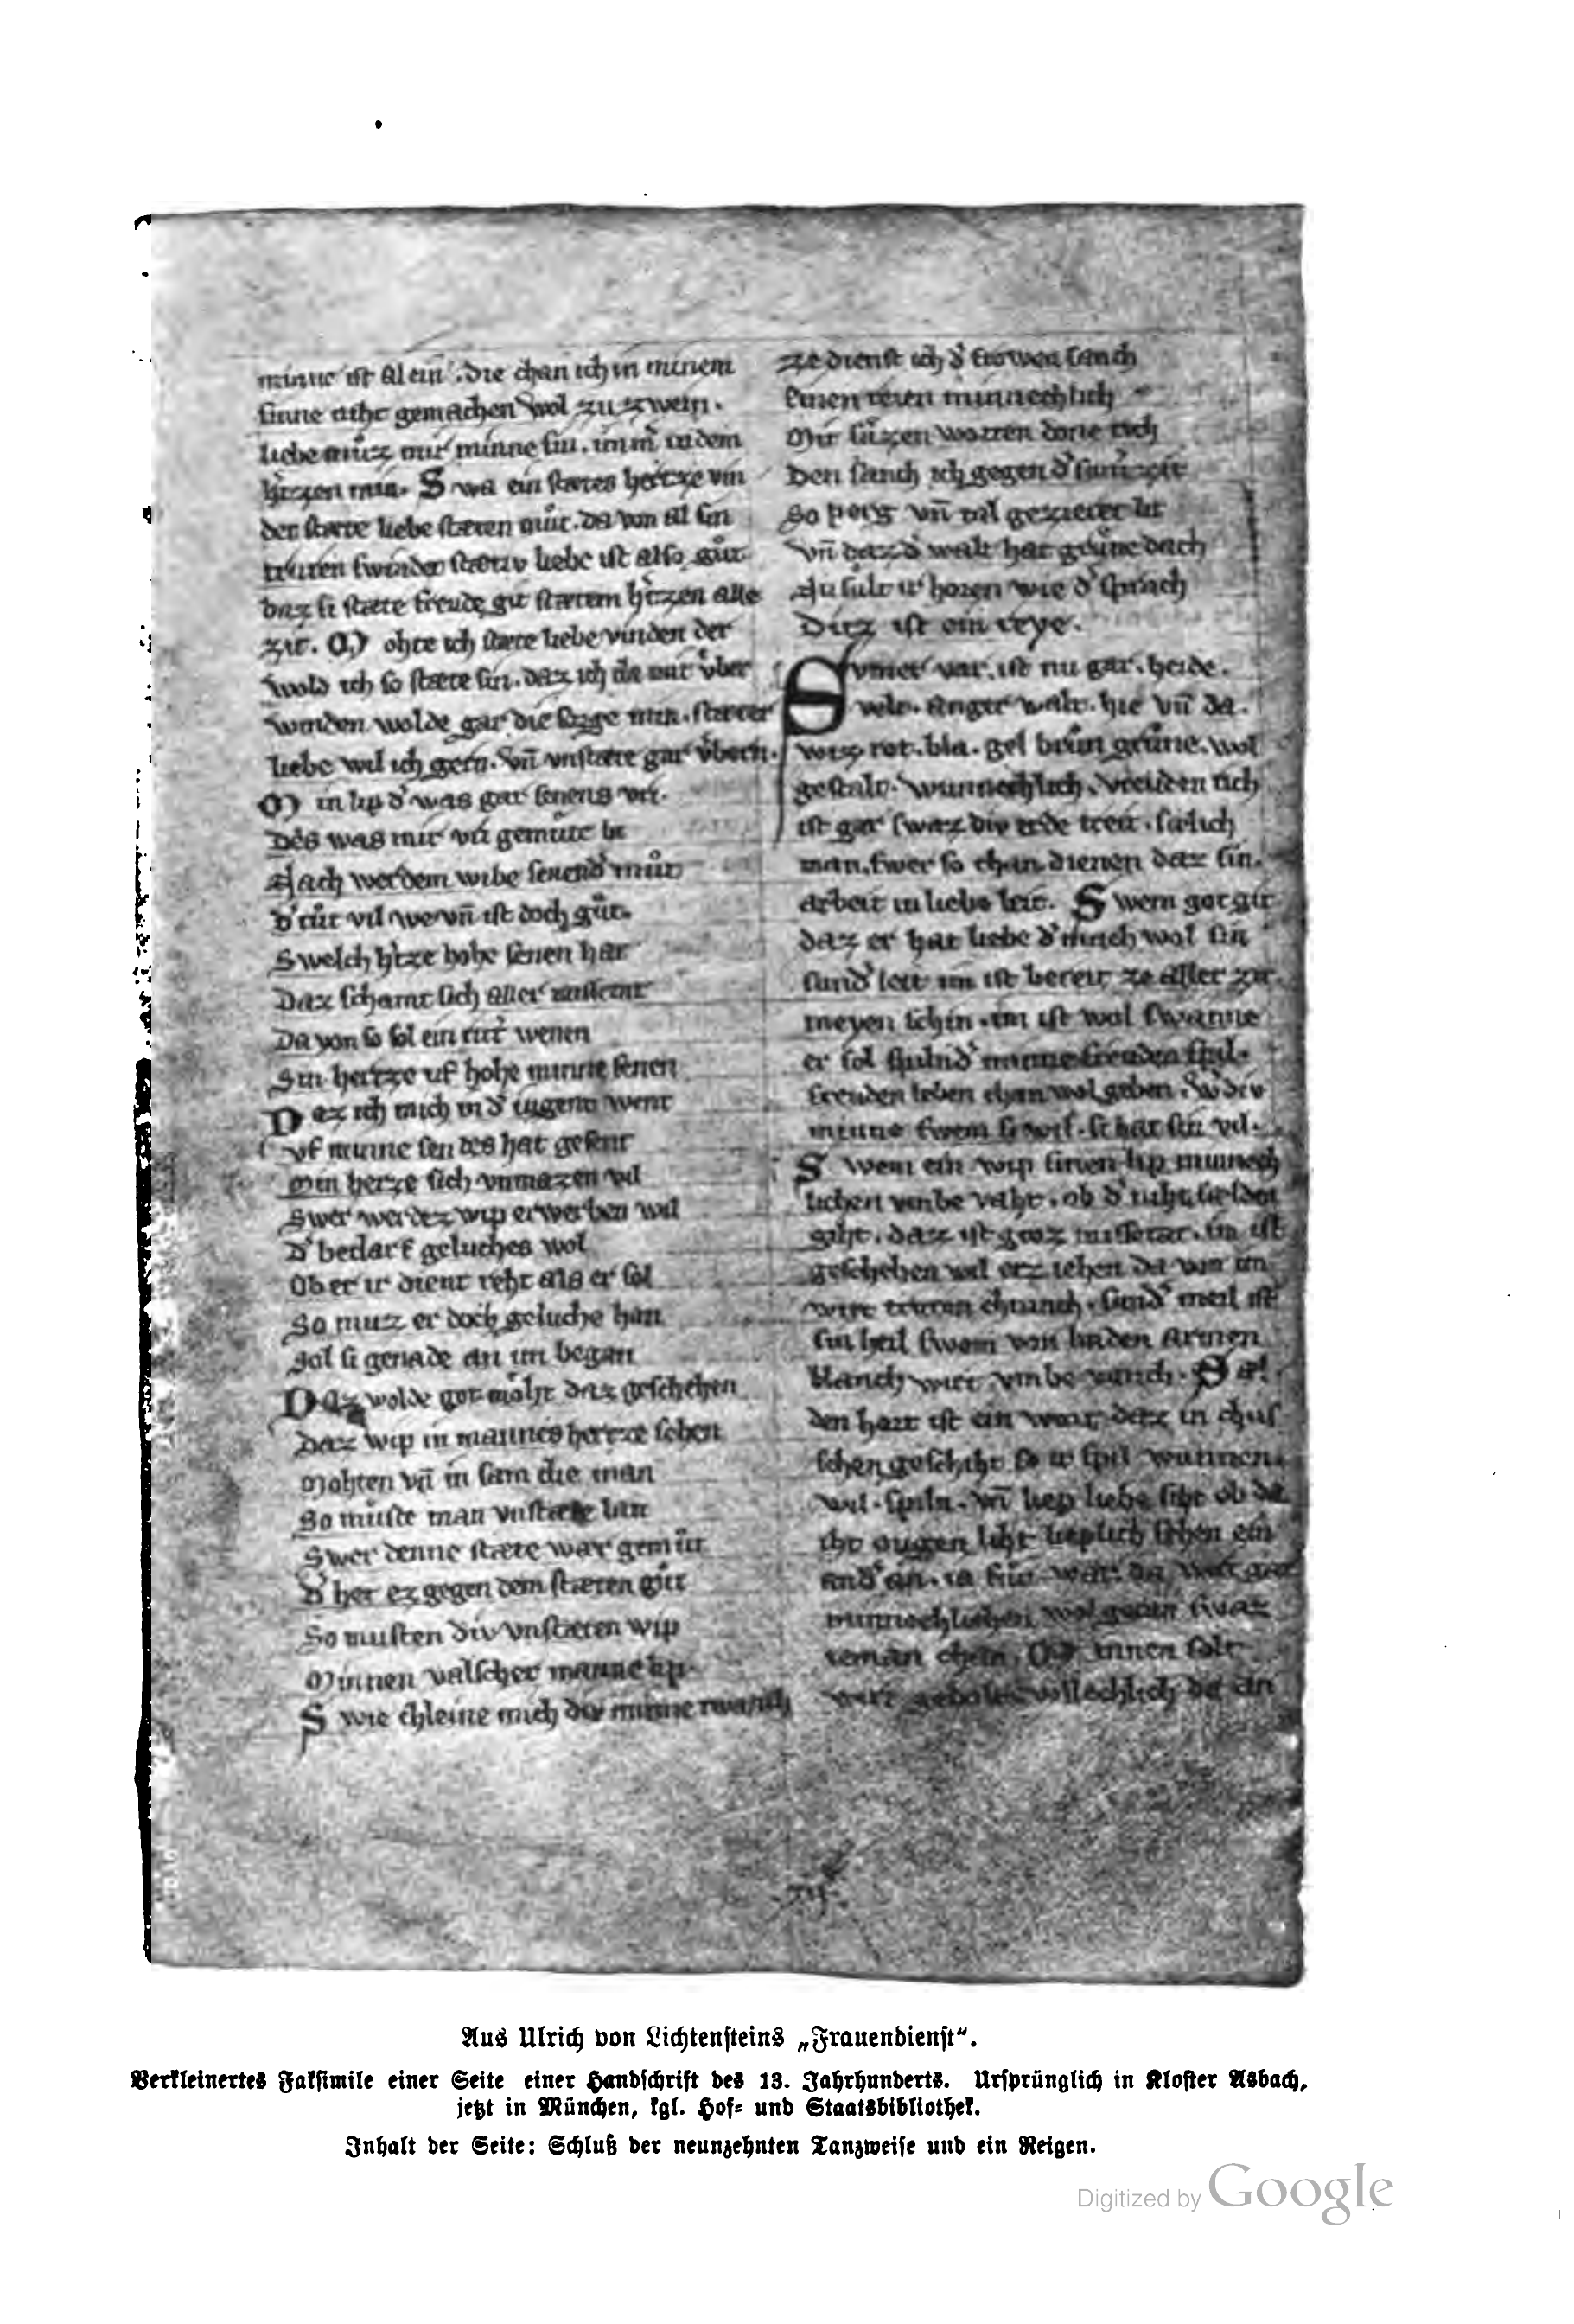 minne ist al ein .die chan ich in minem
sinne niht gemachen wol zu zwein.
liebe můz mir minne sin. imm̄ in dem
h̕zen min. S wa ein stætes hertze vin
der stæte liebe stæten můt. da von al sin
truren swindet stætiv liebe ist also gůt
daz si stæte freude git stætem h̕zen alle
zit. M ohte ich stæte liebe vinden der
wold ich so stæte sin. daz ich da mit vber
winden wolde gar die sorge min. stæter
liebe wil ich gern. vn̄ vnstæte gar vberen.
M in lip d̕ was gar senens vri.
Des was mir vil gemůte bi
Nach werdem wibe senend̕ můt
d̕ tůt vil we vn̄ ist doch gůt.
Swelch h̕tze hohe senen hat
Daz schamt sich aller missetat
Da von so sol ein ritt̕ wenen
Sin hertze uf hohe minne senen
D az ich mich in d̕ iugent went
vf minne sen des hat gesent
Min herze sich vnmazen vil
Swer werdez wip erwerben wil
D̕ bedarf geluches wol
Ob er ir dient reht als er sol
So muz er doch geluche han
Sol si genade an im began
D az wolde got moht daz geschehen
Daz wip in mannes hertze sehen
Mohten vn̄ in sam die man
So můste man vnstæte lan
Swer denne stæte wær gemůt
D̕ het ez gegen dem stæten gůt
So musten div vnstæten wip
Minnen valscher manne lip
S wie chleine mich div minne twanch
ze dienst ich d̕ frowen sanch
Einen reien minnechlich
Mir sůzen worten done rich
Den sanch ich gegen d̕ sum̕ zit
So vn̄ tal gezieret lit
Vn̄ daz d̕ walt hat grůne dach
Nu sult ir horen wie d̕ sprach
Ditz ist ein reye.
Svmer var. ist nu gar. heide.
velt. anger walt. hie vn̄ da.
wiz rot. bla. gel brun grůne. wol
gestalt. wunnechlich. vreuden rich
ist gar swaz div erde treit. sælich
man. swer so chan dienen daz sin.
arbeit in liebe leit. S wem got git
daz er hat liebe d̕ mach wol sin
sund̕ leit im ist bereit ze aller zit.
meyen schin. im ist wol swanne
er sol spiln d̕ minne freuden spil.
freuden leben chan wol geben. div
minne swem si wil. si hat sin vil.
S wem ein wip sinen lip minnech
lichen vmbe vaht. ob d̕ niht sælden
giht. daz ist groz missetat. im ist
geschehen wil erz iehen da von im
wirt truren chranch. sund̕ meil ist
sin heil swem von linden armen
blanch wirt vmbe vanch. Sæl
den hort ist ein wort daz in chus
schen geschiht so ir spil wunnen.
wil. spiln. vn̄ liep liebe siht ob da
iht ougen liht lieplich sehen ein
and̕ an. ia fůr war. da wirt gar
minnechlichen wol getan swaz
ieman chan. M innen solt
wirt geholt vollechlich da ein
Aus Ulrich von Lichtensteins „Frauendienst“.
Verkleinertes Faksimile einer Seite einer Handschrift des 13. Jahrhunderts. Ursprünglich in Kloster Asbach,
jetzt in München, kgl. Hof- und Staatsbibliothek.
Inhalt der Seite: Schluß der neunzehnten Tanzweise und ein Reigen.
Digitized by Google